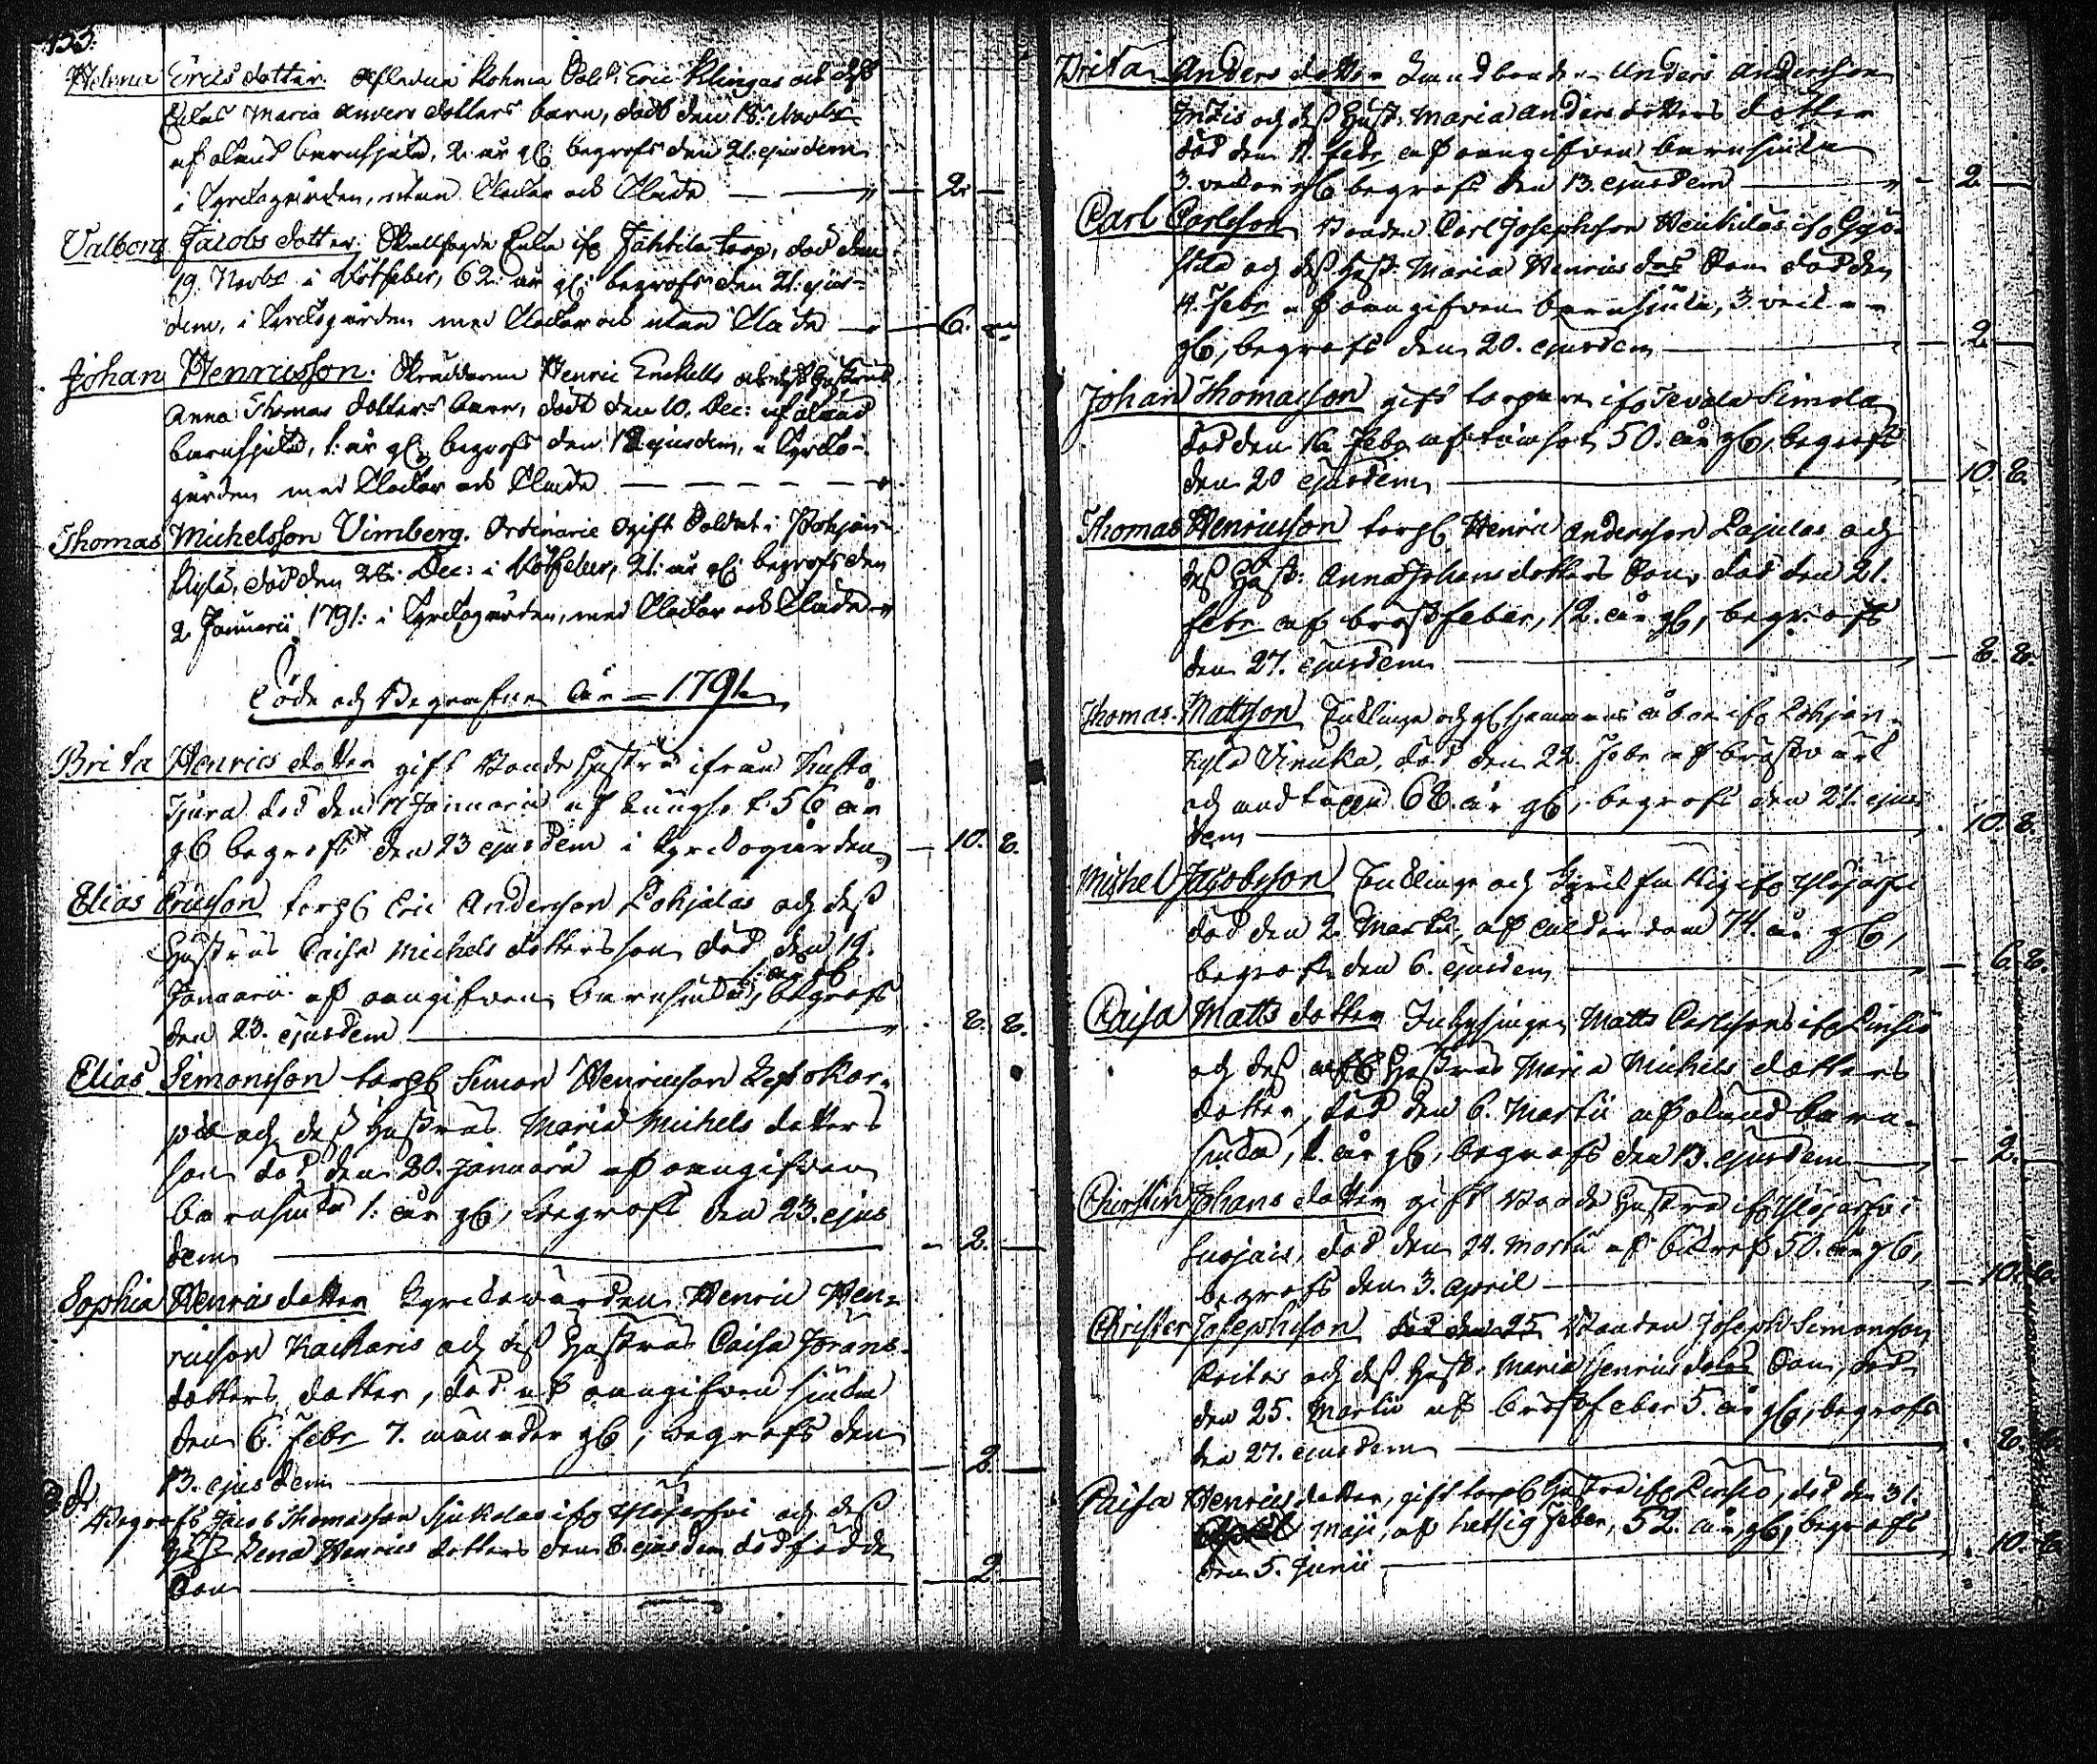 153.
Helena Erics dotter. Afledne Rohma Sold: Eric Klingas och dess
Enkas Maria Anders dotters barn, dödt den 18: Novbr
af okänd barnsjuka, 2. år gl: begrofs den 21. ejusdem
i Kyrckogården, utan Klockor och Kläde — 2. —
Valborg Jacobs dotter. Enka ifr Jahttila torp, död den
19. Novbr i Rötfeber, 62. år gl: begrofs den 21. ejus-
dem, i Kyrckogården med Klockor och utan Kläde — 6.
Johan Henricsson. Skräddaren Henric Enckells och dess hustrus
Anna Thomas dotters barn, dödt den 10. Dec: af okänd
barnsjuka, 1. år gl: begrofs den 12 ejusdem, i Kyrcko-
gården med Klockor och Kläde — — — — —
Thomas Michelsson Vimberg. Ordinarie ogift Soldat i Pohjan-
kylä, död den 28: Dec: i Rötfeber, 21: år gl: begrofs den
2. Januarii 1791: i Kyrckogården, med Klockor och Kläde
Döde och Begrafne År — 1791.
Brita Henrics dotter gift Bonde Hustru ifrån
död den 17 Januarii af lungsot 56 år
gl begrofs den 23 ejusdem i Kyrckogården — 10. 8.
Elias Ericsson torp Eric Andersson Pohjalas och dess
Hustrus Caisa Michels dotters son död den 19.
Januarii af oangifven barnsjuka, 1. år gl begrofs
den 23. ejusdem — 8. 8.
Elias Simonsson torp Simon Henricsson
och dess Hustrus Maria Michels dotters
son död den 20. Januarii af oangifven
barnsjuka 1: år gl, begrofs den 23. ejus
dem — 2. —
Sophia Henrics dotter Kyrckowärden Henric Hen-
ricsson Kaicharis och dess Hustrus Caisa Jörans-
dotters dotter, död af oangifven sjuka
den 6. Febr 7. månader gl, begrofs den
13. ejusdem — 2. —
Begrofs Jacob Thomasson ifr Ylöjerfvi och dess
Hust Lena Henrics dotters den 8. ejusdem dödfödde
Son — 2. —
Brita Anders dotter Landbonden Anders Andersson
och dess Hust: Maria Anders dotters dotter
död den 11. Febr af oangifven barnsjuka
3. veckor gl begrofs den 13. ejusdem — 2. —
Carl Carlsson Bonden Carl Josephsson ifr
och dess Hust: Maria Henrics dots Son död den
14. Febr af oangifven barnsjuka, 3. veckor
gl, begrofs den 20. ejusdem — 2. —
Johan Thomasson gift torpare ifr Tevala Simola
död den 16 Febr af 50. år gl, begrofs
den 20 ejusdem — 10. 8.
Thomas Henricsson torp Henric Andersson Lajulas och
dess Hust: Anna Johans dotters Son, död den 21.
Febr af bröstfeber, 12. år gl, begrofs
den 27. ejusdem — 8. 8.
Thomas Mattsson Enklinge och gl hemmans åboe ifr Pohjan-
kylä död den 22. Febr af bröstvärk
och andtäppa 68. år gl, begrofs den 27. ejus
dem — 10. 8.
Michel Jacobsson Enklinge och ifr Ylöjärfvi
död den 2. Martii, af ålderdom 74. år gl,
begrofs den 6. ejusdem — 6. 8.
Caisa Matts dotter Inhysingen Matts Carlssons ifr Pinsiö
och dess afl Hustrus Maria Michels dotters
dotter, död den 6. Martii af okänd barn-
sjuka, 1. år gl, begrofs den 13. ejusdem — 2. —
Christin Johans dotter gift Bonde Hustru ifr Ylöjärfvi
död den 24. Martii af 50. år gl,
begrofs den 3. April — 10. 8.
Christer Josephsson Bonden Joseph Simonsson
och dess Hust: Maria Henrics dotrs Son, död
den 25. Martii af bröstfeber 5. år gl, begrofs
den 27. ejusdem — 8. 8.
Caisa Henrics dotter, gift torp Hustru ifr Pinsiö, död den 31.
Maji, af hettsig feber, 52. år gl, begrofs
den 5. Junii — 10. 8.